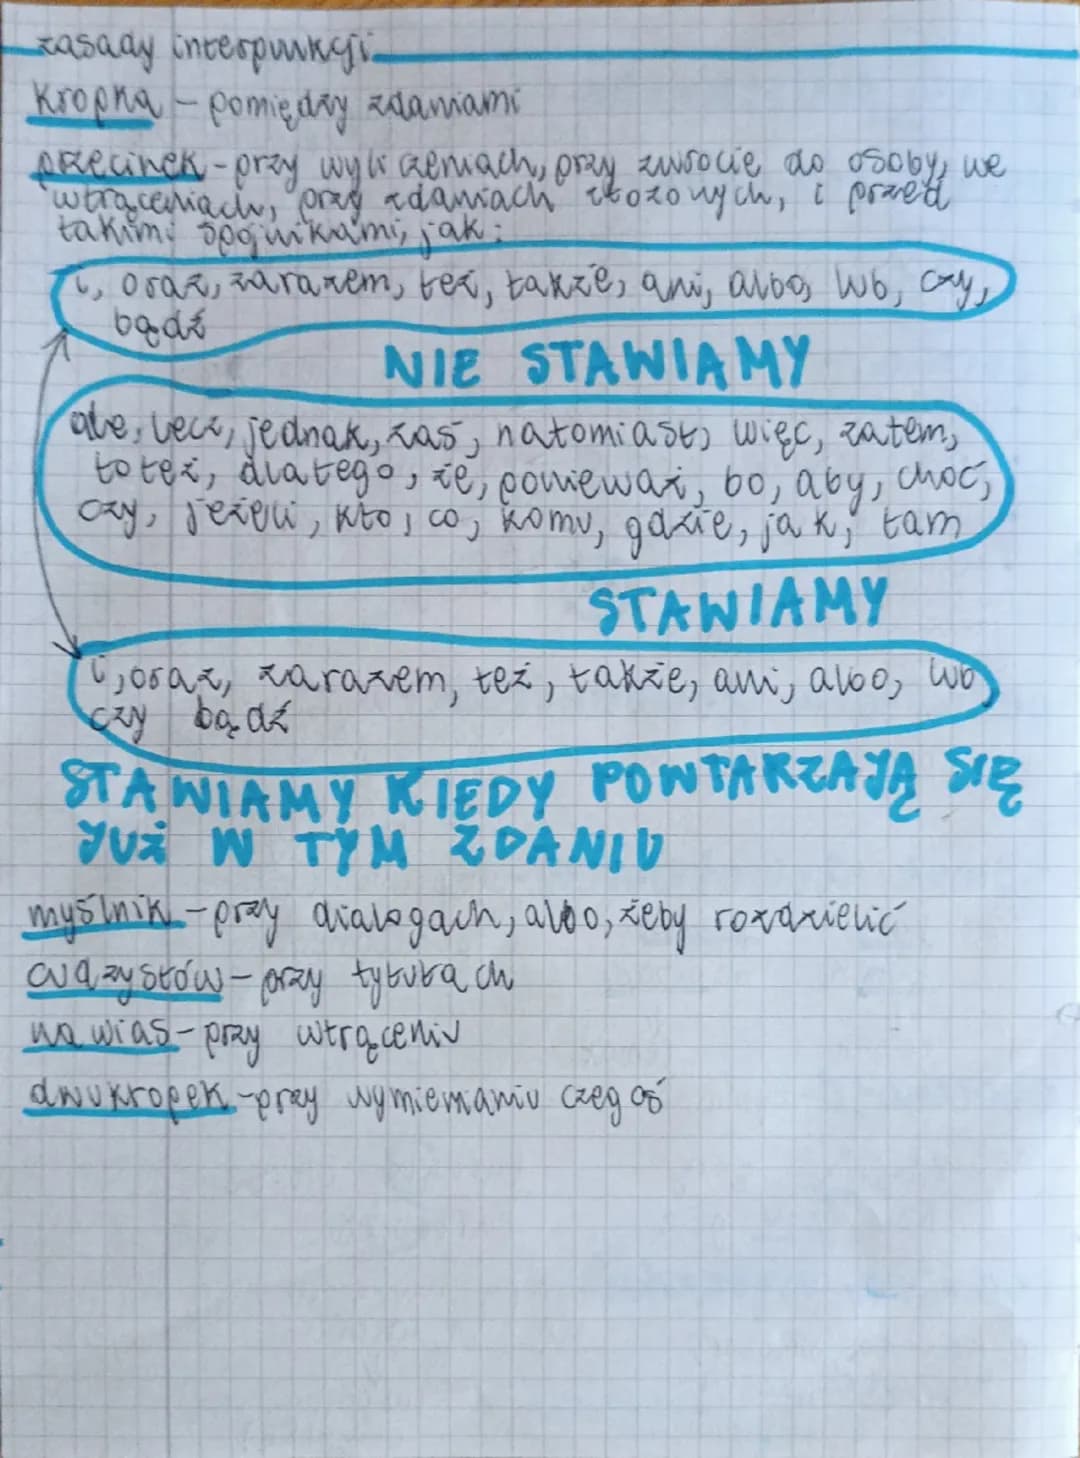 zasady interpunkcji
kropka - pomiędzy zdaniami
przecinek - przy wyliczeniach, przy zwrocie do osoby, we
wtrąceniach, przy zdaniach złożonych, i przed
takimi spójnikami, jak:
i, oraz, zarazem, też, także, ani, albo, lub, czy,
bądź
NIE STAWIAMY
ale, lecz, jednak, zaś, natomiast, więc, zatem,
toteż, dlatego, że, ponieważ, bo, aby, choć,
czy, jeżeli, kto, co, komu, gdzie, jak, tam
STAWIAMY
i, oraz, zarazem, też, także, ani, albo, lub
czy bądź
STAWIAMY KIEDY POWTARZAJĄ SIĘ
JUŻ W TYM ZDANIU
myślnik - przy dialogach, albo, żeby rozdzielić
cudzysłów - przy tytułach
nawias - przy wtrąceniu
dwukropek - przy wymienianiu czegoś